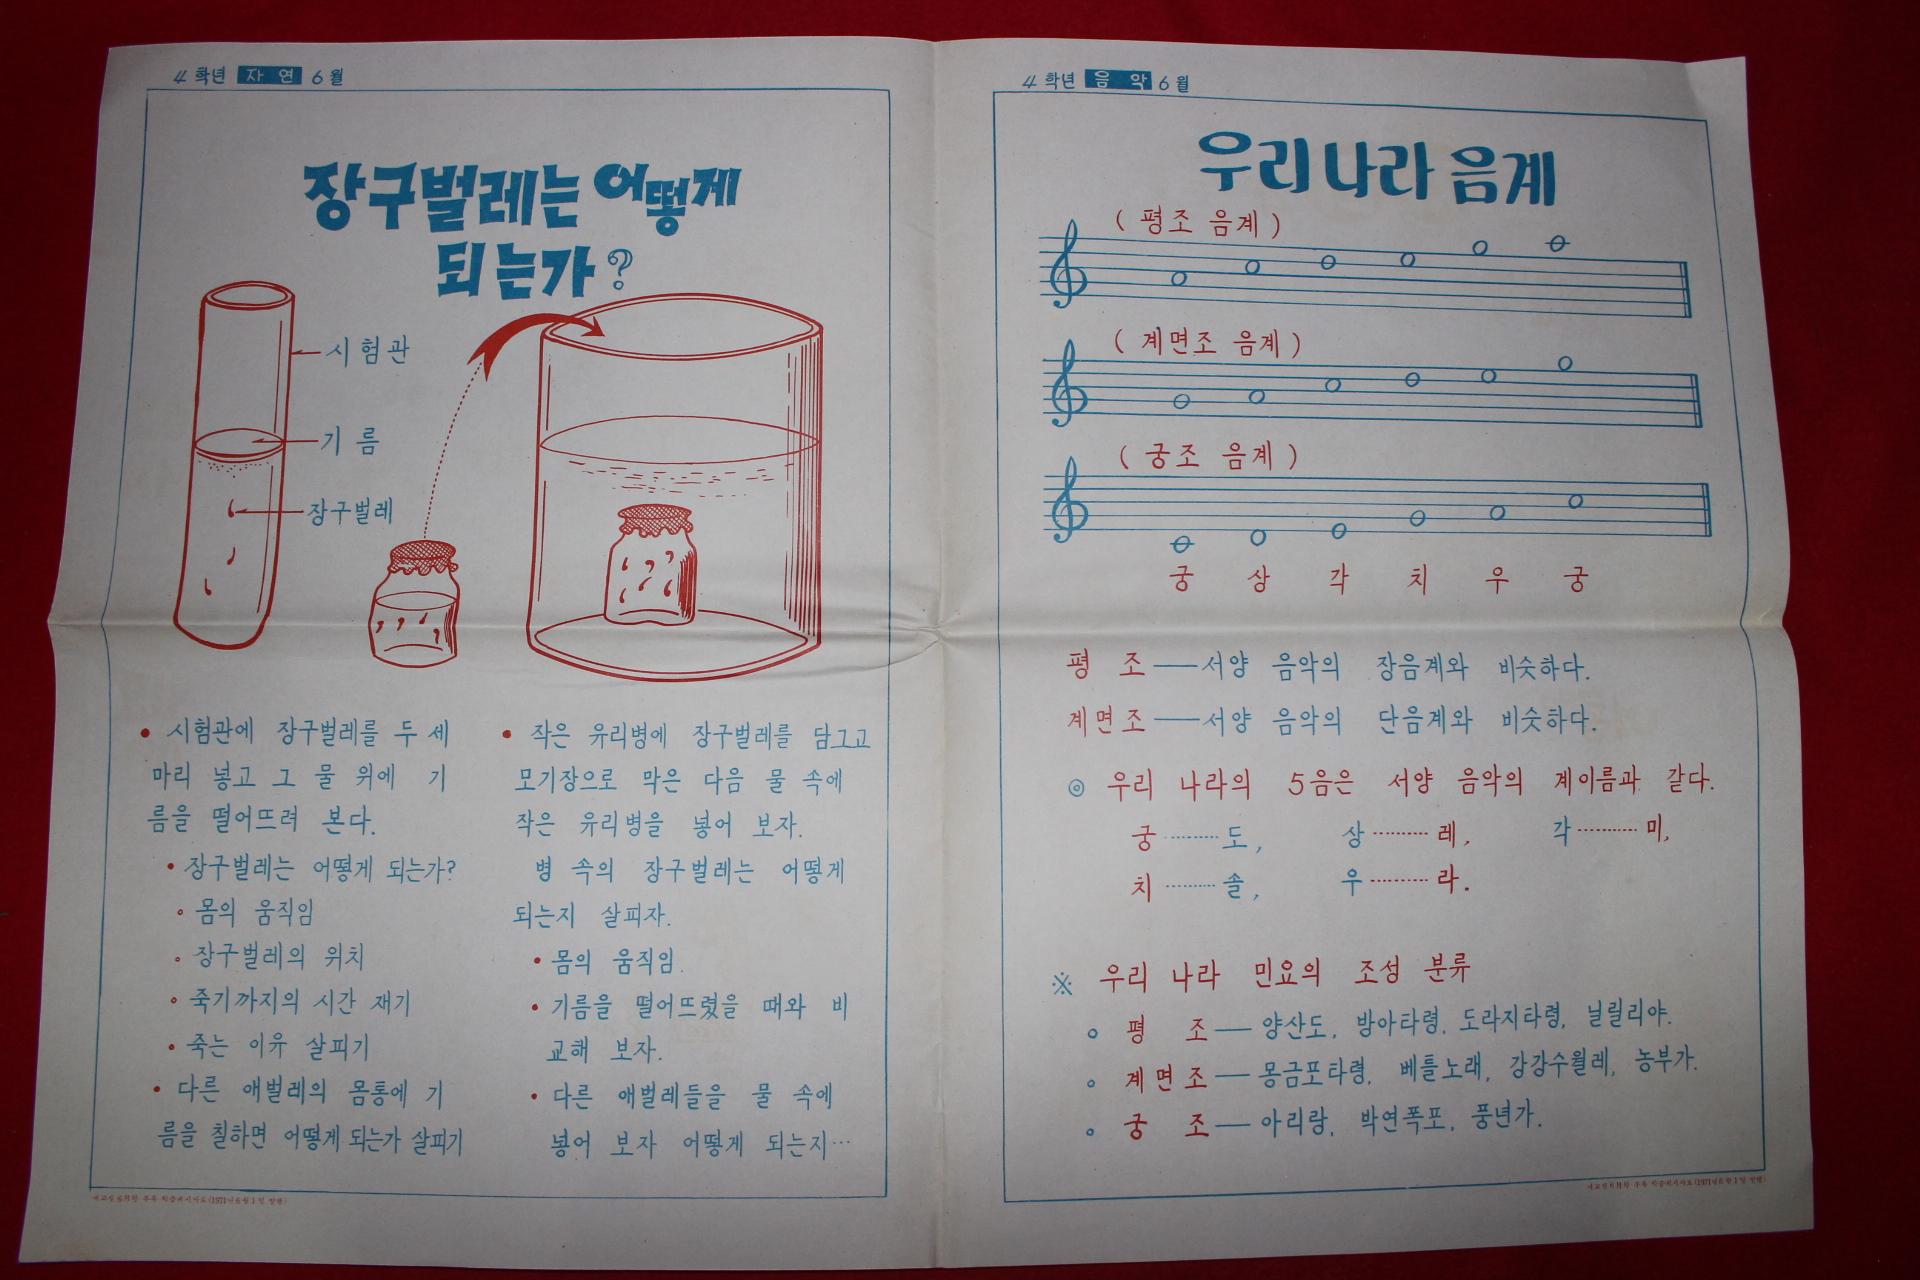 4 학년 자 연 6 월
장구벌레는 어떻게
되는가?
시험관
기 름
장구벌레
• 시험관에 장구벌레를 두 세
마리 넣고 그 물 위에 기
름을 떨어뜨려 본다.
• 장구벌레는 어떻게 되는가?
◦ 몸의 움직임
◦ 장구벌레의 위치
◦ 죽기까지의 시간 재기
• 죽는 이유 살피기
• 다른 애벌레의 몸통에 기
름을 칠하면 어떻게 되는가 살피기
• 작은 유리병에 장구벌레를 담그고
모기장으로 막은 다음 물 속에
작은 유리병을 넣어 보자.
병 속의 장구벌레는 어떻게
되는지 살피자.
• 몸의 움직임.
• 기름을 떨어뜨렸을 때와 비
교해 보자.
• 다른 애벌레들을 물 속에
넣어 보자 어떻게 되는지…
(1971년 6월 1일 발행)
4 학년 음 악 6 월
우리 나라 음계
( 평조 음계 )
( 계면조 음계 )
( 궁조 음계 )
궁 상 각 치 우 궁
평 조 ── 서양 음악의 장음계와 비슷하다.
계면조 ── 서양 음악의 단음계와 비슷하다.
◎ 우리 나라의 5음은 서양 음악의 계이름과 같다.
궁 ········ 도, 상 ········ 레, 각 ········ 미,
치 ········ 솔, 우 ········ 라.
※ 우리 나라 민요의 조성 분류
◦ 평 조 ── 양산도, 방아타령, 도라지타령, 닐릴리야.
◦ 계면조 ── 몽금포타령, 베틀노래, 강강수월레, 농부가.
◦ 궁 조 ── 아리랑, 박연폭포, 풍년가.
(1971년 6월 1일 발행)